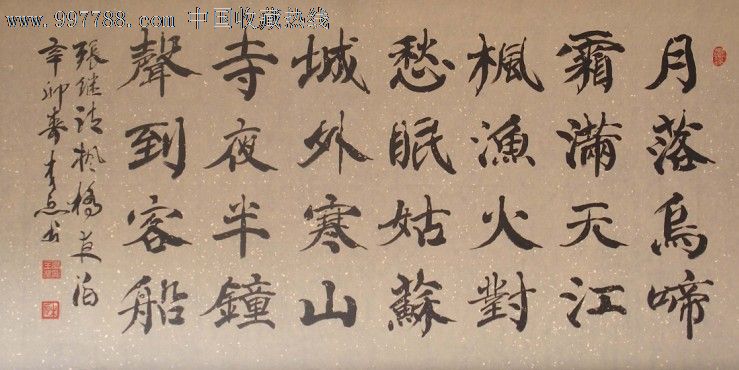 www.997788.com 中国收藏热线
月落烏啼
霜滿天江
楓漁火對
愁眠姑蘇
城外寒山
寺夜半鐘
聲到客船
張继诗枫橋夜泊
辛卯春